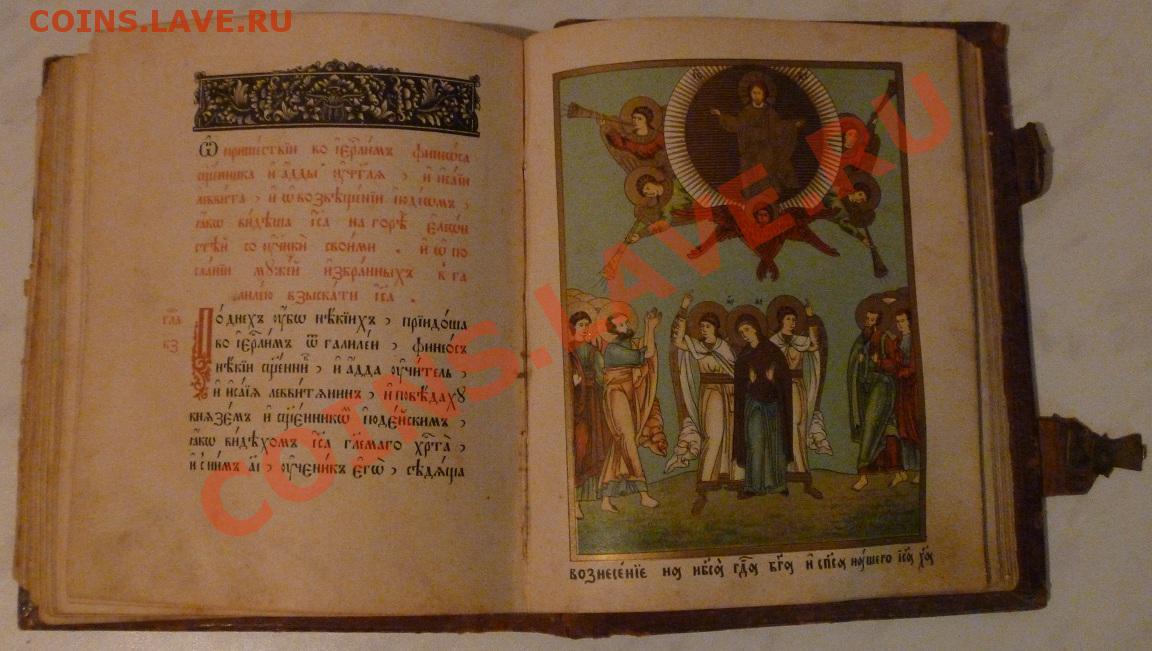 COINS.LAVE.RU
Ѡ пришествїи во їєрⷭ҇лимъ финеѡса
сщ҃енника и҆ адды ᲂу҆чт҃ля , и҆ и҆саїи
леввита , и҆ ѡ҆ возвѣщенїи і҆ꙋдеѡмъ ,
ꙗ҆кѡ видѣша і҆с҃а на горѣ є҆леѡн
стѣй со ᲂу҆чн҃ки своими . и҆ ѡ҆ по
сланїи мꙋжей и҆збранныхъ в га
лилею взыскати і҆с҃а .
гла
к҃з
По днехъ ᲂу҆бѡ нѣкїихъ , прїидоша
во їєрⷭ҇лимъ ѿ галилеи , финеѡсъ
нѣкїи сщ҃енникъ , и҆ адда ᲂу҆читель ,
и҆ и҆саїя леввитянинъ , и҆ повѣдахꙋ
князємъ и҆ сщ҃енникѡмъ і҆ꙋдейскимъ ,
ꙗ҆кѡ видѣхомъ і҆с҃а гл҃емаго хрⷭ҇та ,
и҆ с нимъ а҃і ᲂу҆ченикъ є҆гѡ̀ , сѣдяща
COINS.LAVE.RU
вознесе́нїе на нб҃са̀ гдⷭ҇а бг҃а и҆ сп҃са на́шего і҆с҃а х҃а